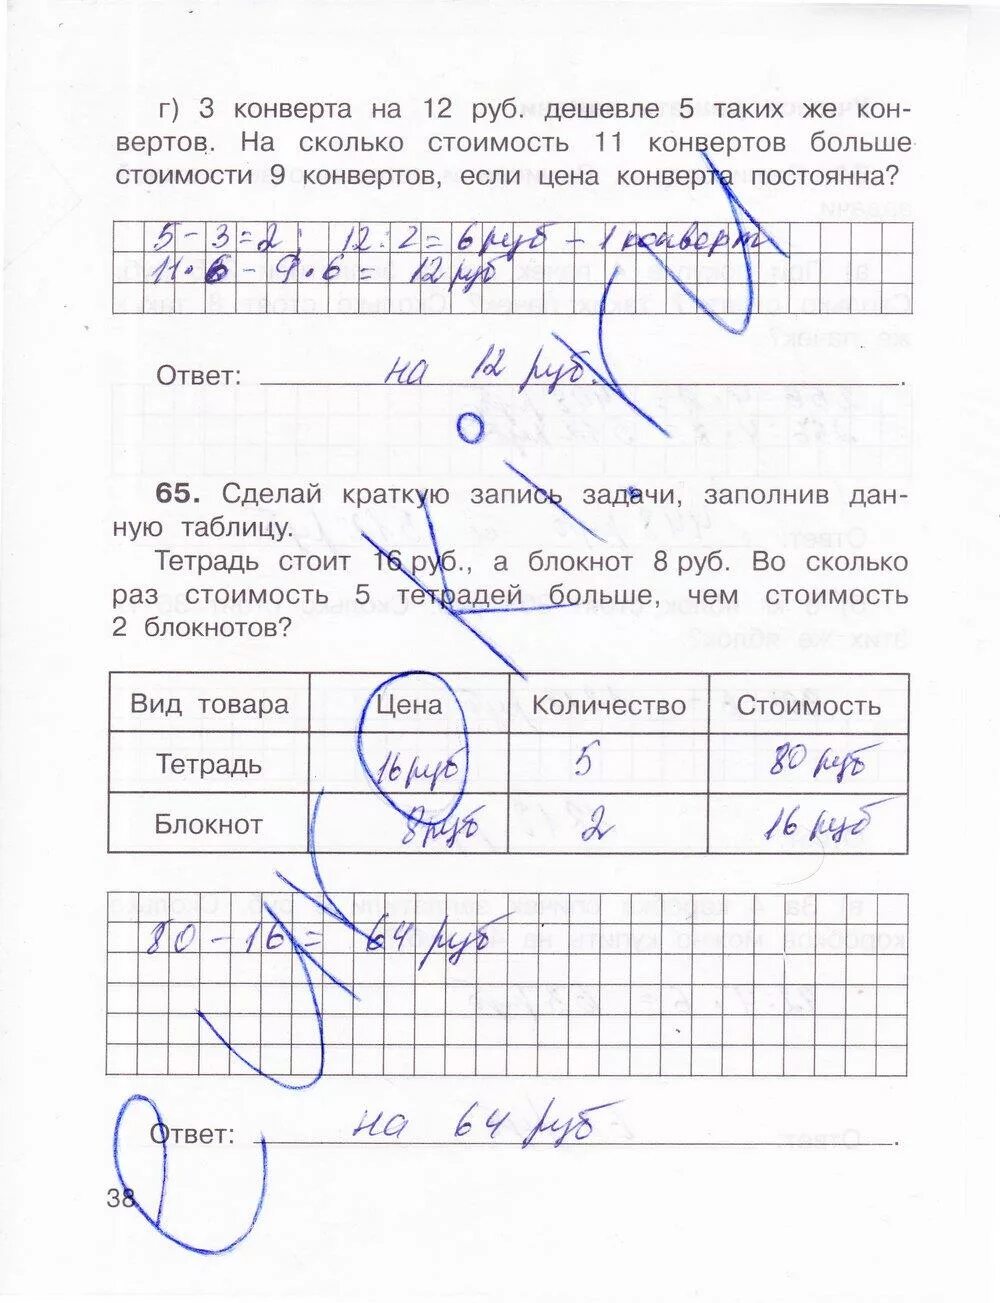 г) 3 конверта на 12 руб. дешевле 5 таких же кон-
вертов. На сколько стоимость 11 конвертов больше
стоимости 9 конвертов, если цена конверта постоянна?
5 - 3 = 2; 12 : 2 = 6 руб - 1 конверт
11 · 6 - 9 · 6 = 12 руб
Ответ: на 12 руб.
65. Сделай краткую запись задачи, заполнив дан-
ную таблицу.
Тетрадь стоит 16 руб., а блокнот 8 руб. Во сколько
раз стоимость 5 тетрадей больше, чем стоимость
2 блокнотов?
Вид товара Цена Количество Стоимость
Тетрадь 16 руб 5 80 руб
Блокнот 8 руб 2 16 руб
80 - 16 = 64 руб
Ответ: на 64 руб.
38